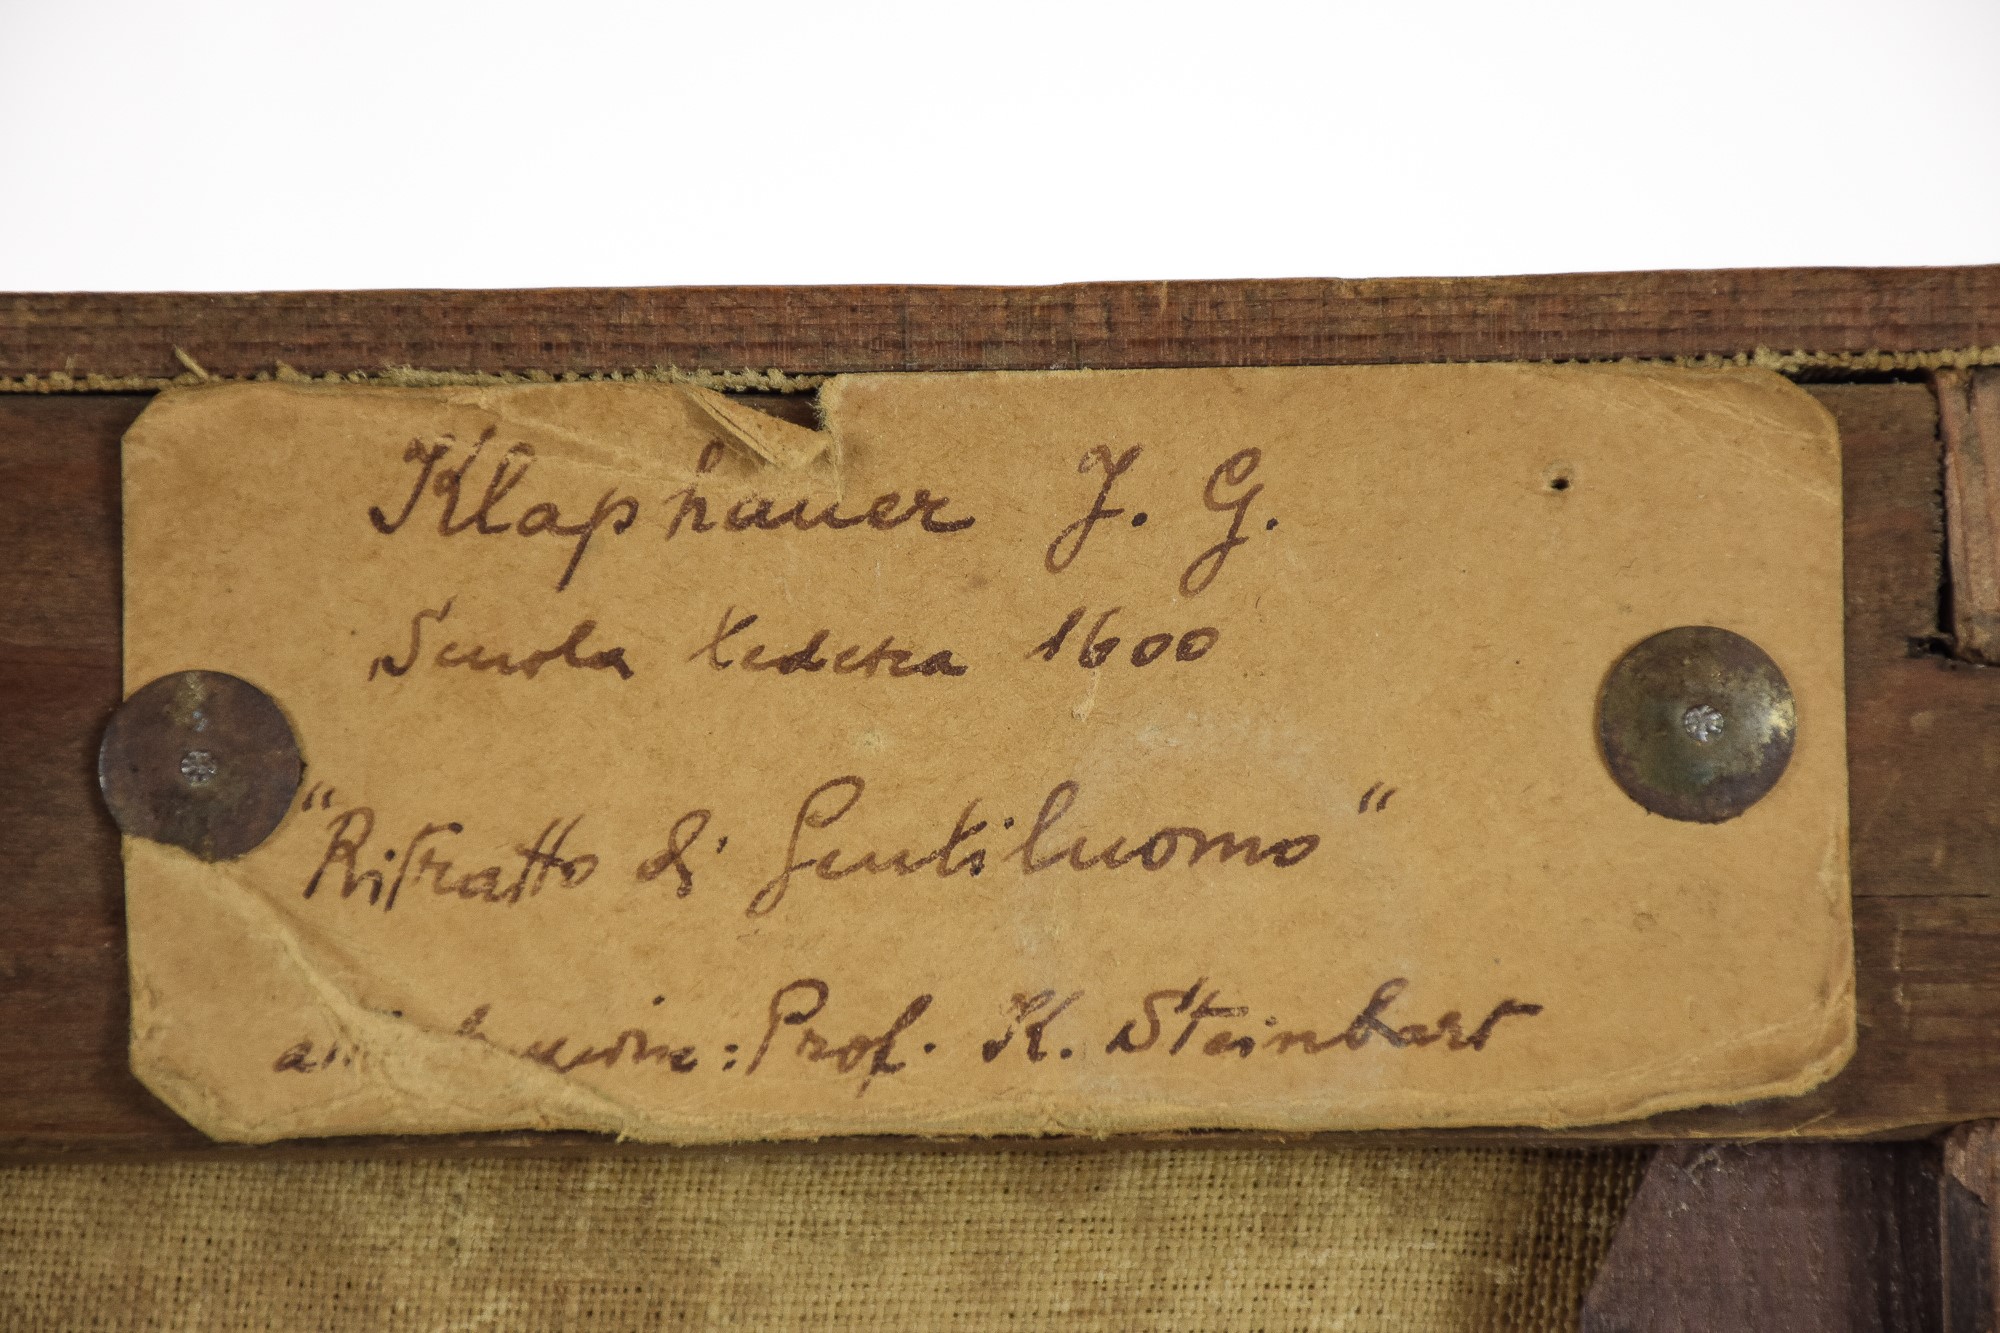 Klaphauer J. G.
Scuola tedesca 1600
"Ritratto di Gentiluomo"
: Prof. K. Steinbart